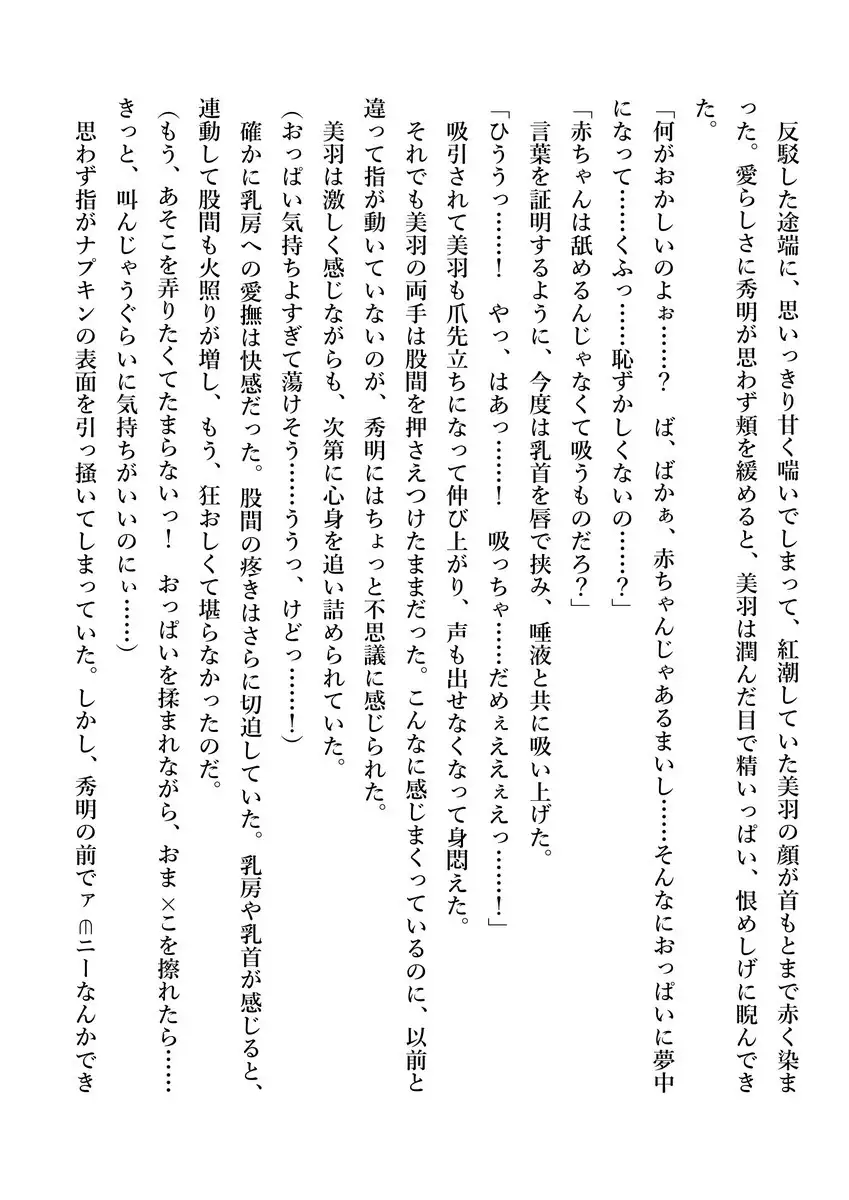 反駁した途端に、思いっきり甘く喘いでしまって、紅潮していた美羽の顔が首もとまで赤く染ま
った。愛らしさに秀明が思わず頬を緩めると、美羽は潤んだ目で精いっぱい、恨めしげに睨んでき
た。
「何がおかしいのよぉ……？　ば、ばかぁ、赤ちゃんじゃあるまいし……そんなにおっぱいに夢中
になって……くふっ……恥ずかしくないの……？」
「赤ちゃんは舐めるんじゃなくて吸うものだろ？」
　言葉を証明するように、今度は乳首を唇で挟み、唾液と共に吸い上げた。
「ひううっ……！　やっ、はあっ……！　吸っちゃ……だめぇええぇえっ……！」
　吸引されて美羽も爪先立ちになって伸び上がり、声も出せなくなって身悶えた。
　それでも美羽の両手は股間を押さえつけたままだった。こんなに感じまくっているのに、以前と
違って指が動いていないのが、秀明にはちょっと不思議に感じられた。
　美羽は激しく感じながらも、次第に心身を追い詰められていた。
（おっぱい気持ちよすぎて蕩けそう……ううっ、けどっ……！）
　確かに乳房への愛撫は快感だった。股間の疼きはさらに切迫していた。乳房や乳首が感じると、
連動して股間も火照りが増し、もう、狂おしくて堪らなかったのだ。
（もう、あそこを弄りたくてたまらないっ！　おっぱいを揉まれながら、おま×こを擦れたら……
きっと、叫んじゃうぐらいに気持ちがいいのにぃ……）
　思わず指がナプキンの表面を引っ掻いてしまっていた。しかし、秀明の前でァ∈ニーなんかでき